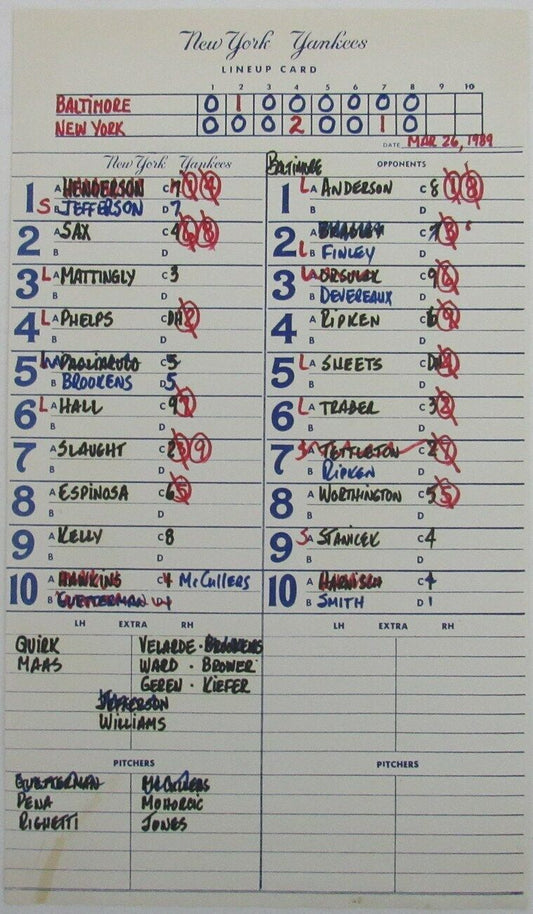 New York Yankees
LINEUP CARD
1 2 3 4 5 6 7 8 9 10
BALTIMORE 0 1 0 0 0 0 0 0
NEW YORK 0 0 0 2 0 0 1 0
DATE MAR 26, 1989
New York Yankees
1 A HENDERSON C 7
S B JEFFERSON D 7
2 A SAX C 4 8
B D
3 L A MATTINGLY C 3
B D
4 L A PHELPS C DH 2
B D
5 L A PAGLIARULO C 5
B BROOKENS D 5
6 L A HALL C 9
B D
7 A SLAUGHT C 2 9
B D
8 A ESPINOSA C 6 5
B D
9 A KELLY C 8
B D
10 A HAWKINS C McCULLERS
B GUETTERMAN
LH EXTRA RH
QUIRK VELARDE · BROOKENS
MAAS WARD · BROWER
GEREN · KIEFER
JEFFERSON
WILLIAMS
PITCHERS
GUETTERMAN McCULLERS
PENA MOHORCIC
RIGHETTI JONES
BALTIMORE OPPONENTS
1 L A ANDERSON C 8 1 8
B D
2 A BRADLEY C 7
L B FINLEY D
3 L A ORSULAK C 9 6
B DEVEREAUX D
4 A RIPKEN C 6 9
B D
5 L A SHEETS C
B D
6 L A TRABER C 3 2
B D
7 S A TETTLETON C 2
B RIPKEN D
8 A WORTHINGTON C 5 5
B D
9 S A STANICEK C 4
B D
10 A HARNISCH C 1
B SMITH D 1
LH EXTRA RH
PITCHERS